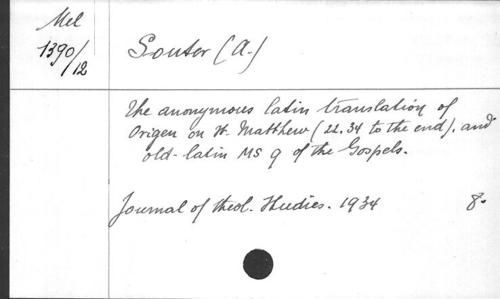 Mel
1390/12
Souter (A.)
The anonymous latin translation of
Origen on St. Matthew (22.34 to the end), and
old-latin MS q of the Gospels.
Journal of theol. Studies. 1934 8°